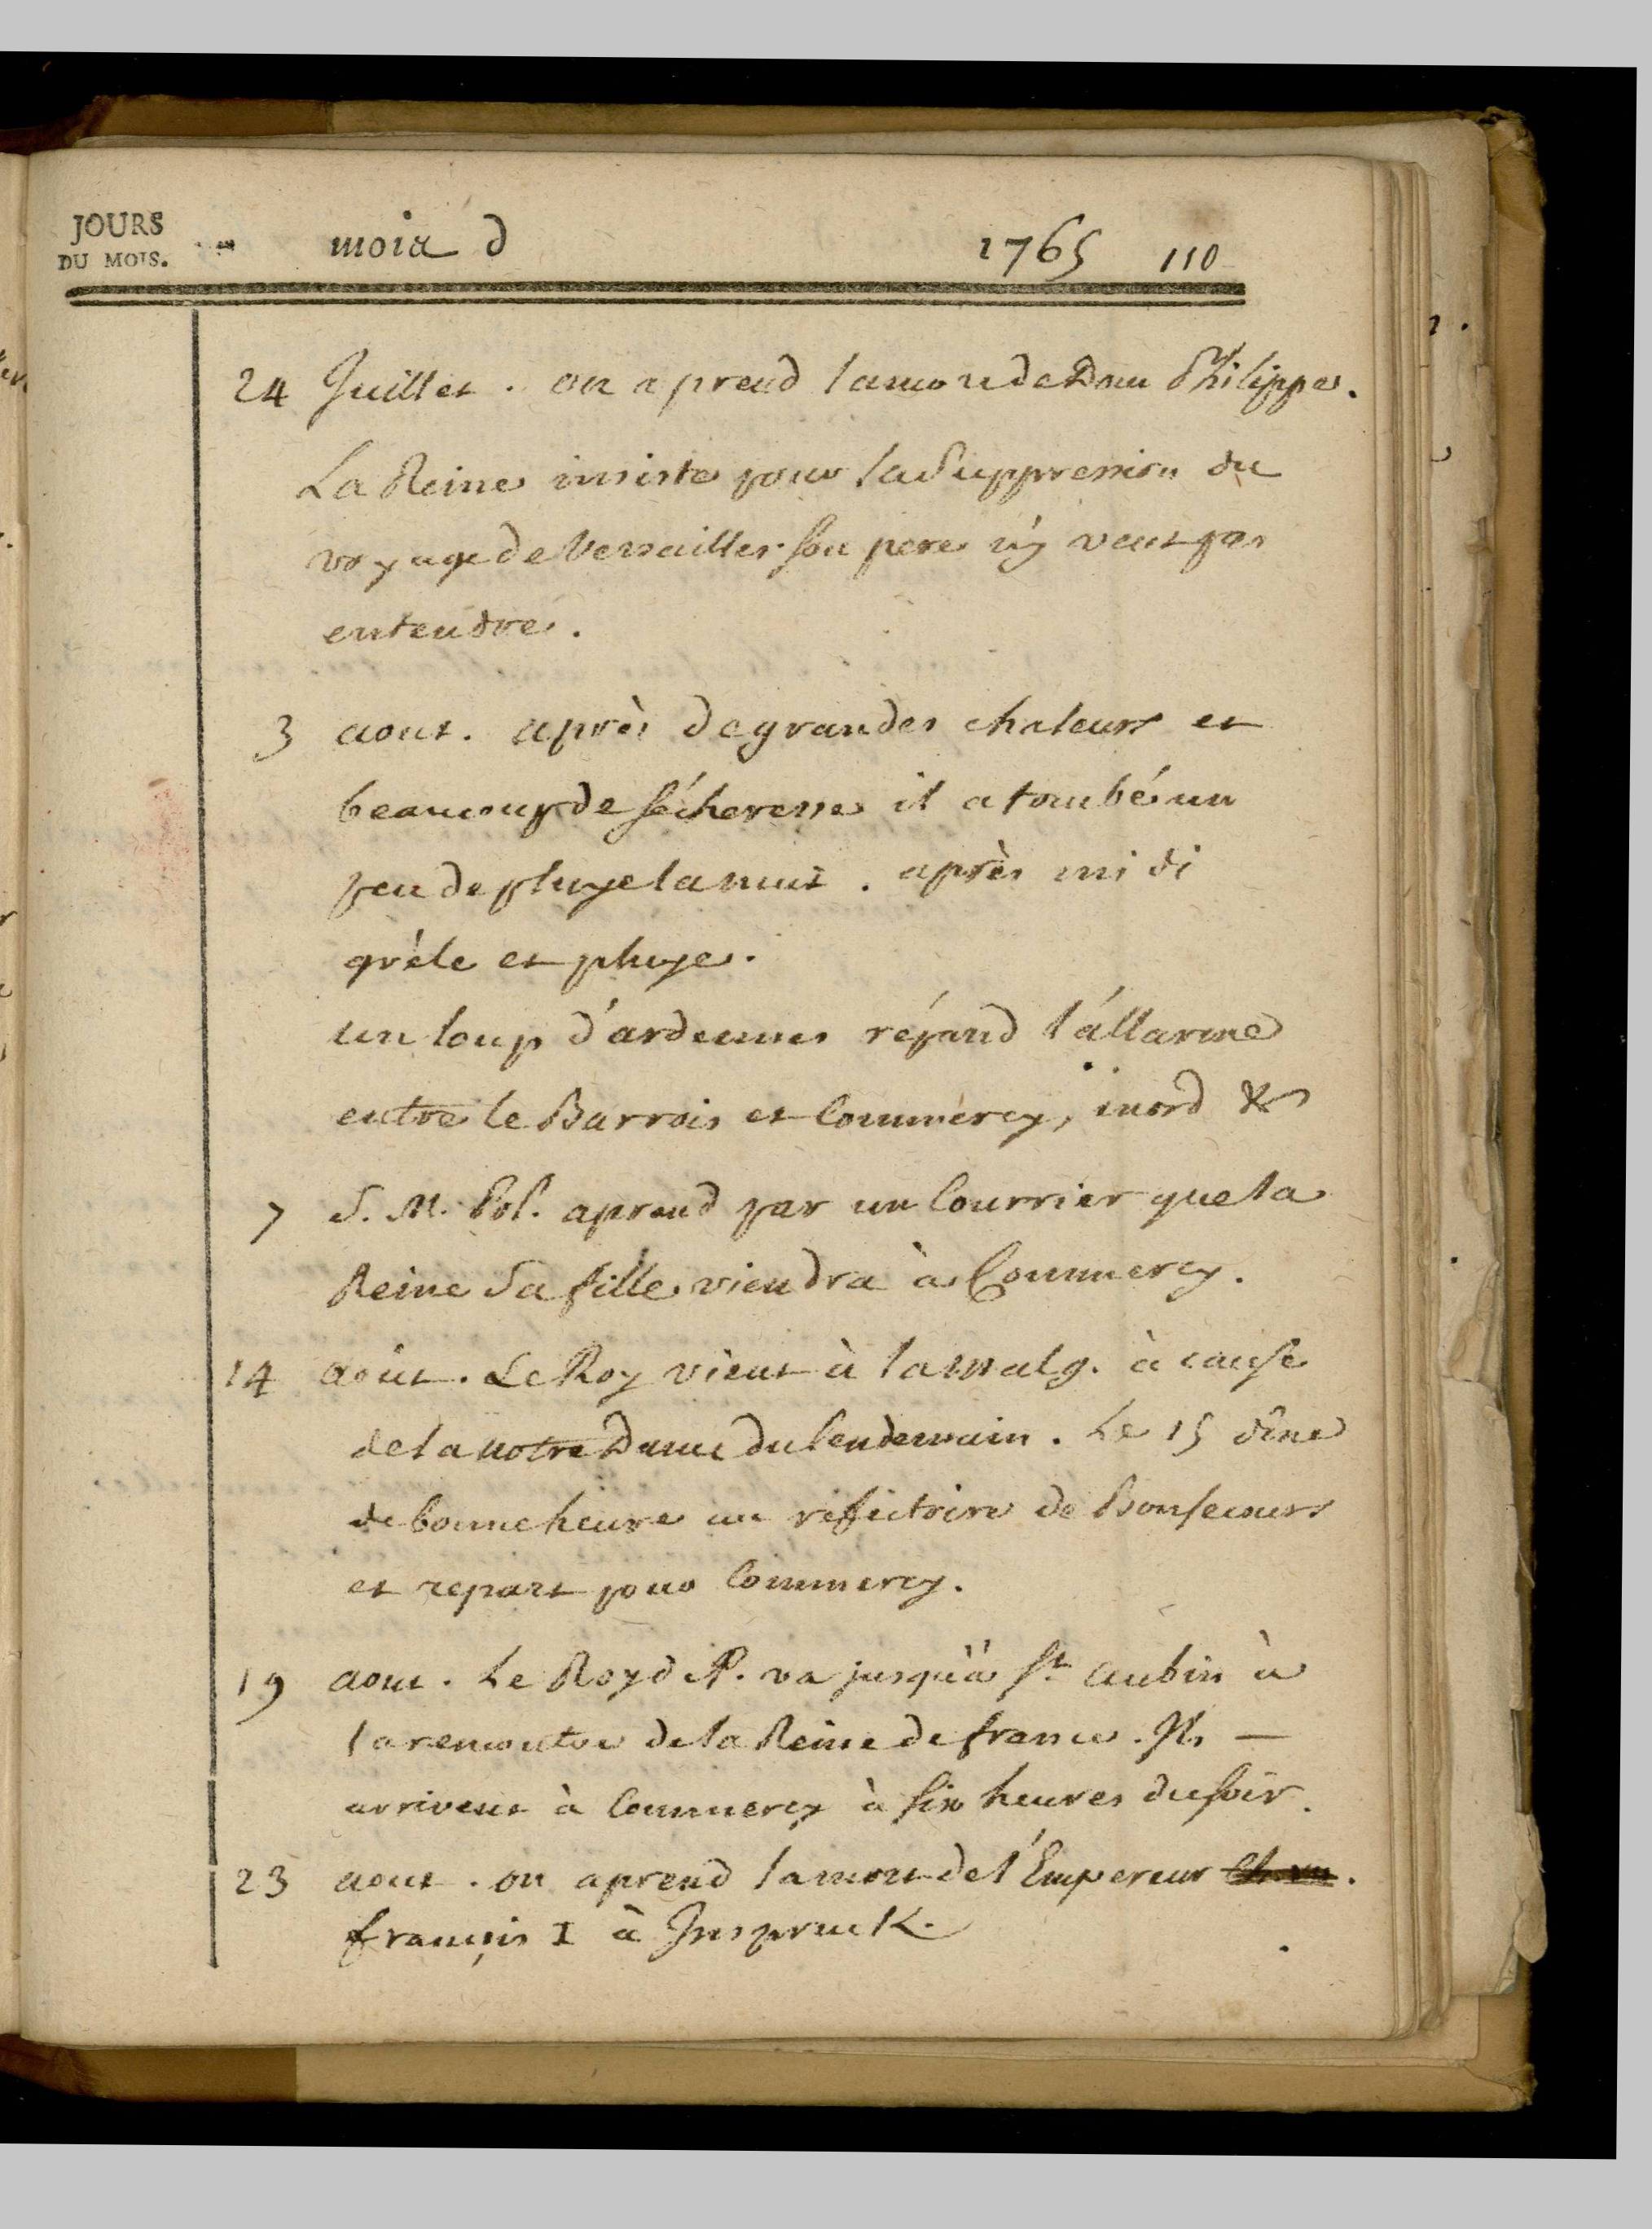 JOURS
DU MOIS.
mois d
1765 110
24 Juillet . on aprend la mort de Dom Philippe.
La Reine insiste pour la Suppression du
voyage de Versailles. son pere n'y veut pas
entendre.
3 aout. après de grandes chaleurs et
beaucoup de sécheresse il a tombé un
peu de pluye la nuit . après midi
grêle et pluye.
un loup d'ardennes répand l'allarme
entre le Barrois et Commercy, mord &c
7 S. M. Pol. aprend par un Courrier que la
Reine Sa fille viendra à Commercy.
14 août. Le Roy vient à la Malg. à cause
de la notre Dame du lendemain. Le 15 dîne
de bonne heure au réfectoire de Bonsecours
et repart pour Commercy.
19 aout. Le Roy d. P. va jusqu'à St. Aubin à
la rencontre de la Reine de france. Ils —
arrivent à Commercy à six heures du soir.
23 aout. on aprend la mort de l'Empereur
françois I à Inspruck.